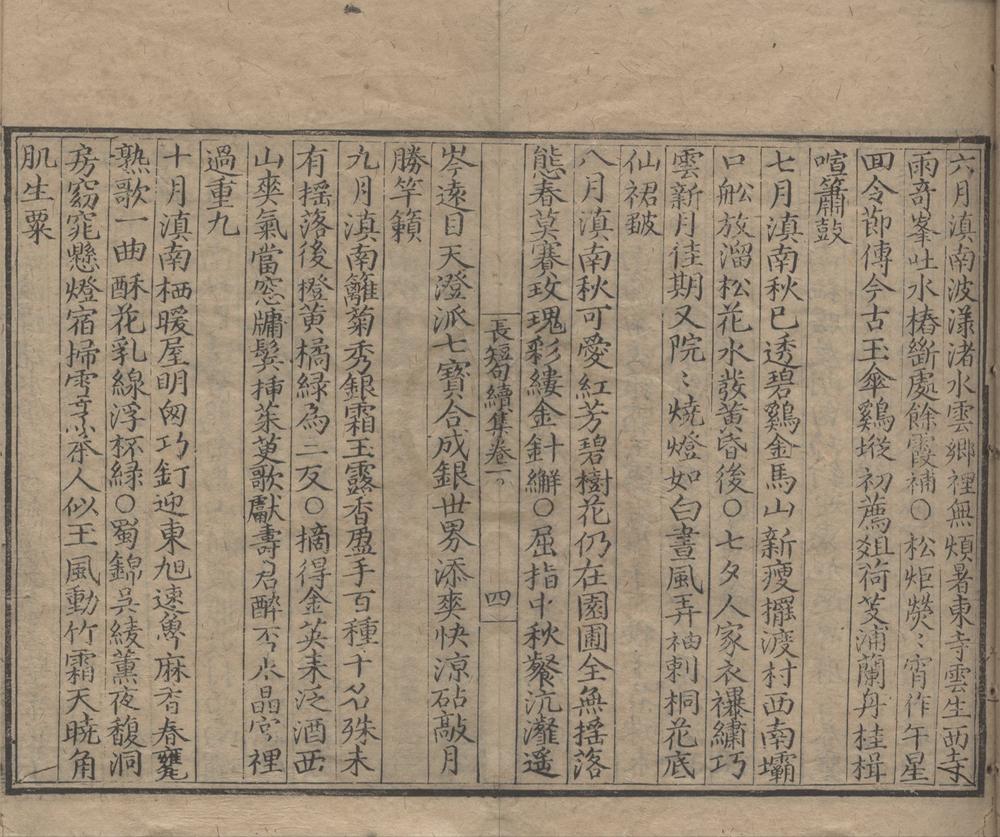 六月滇南波漾渚水雲鄉裡無煩暑東寺雲生西寺
雨奇峯吐水樁斷處餘霞補○松炬熒〻宵作午星
回令節傳今古玉傘鷄㙡初薦俎荷芰浦蘭舟桂楫
喧簫鼓
七月滇南秋已透碧鷄金馬山新瘦擺渡村西南壩
口船放溜松花水發黃昏後○七夕人家衣襮繡巧
雲新月佳期又院〻燒燈如白晝風弄袖刺桐花底
仙裙皺
八月滇南秋可愛紅芳碧樹花仍在園圃全無摇落
態春莫賽玫瑰彩縷金針繲○屈指中秋餐沆瀣遥
長短句續集卷一
四
岑遠目天澄派七寶合成銀世界添爽快涼砧敲月
勝竿籟
九月滇南籬菊秀銀霜玉露香盈手百種千名殊未
有摇落後橙黃橘緑為三友○摘得金英来泛酒西
山爽氣當窓牖鬂揷茱萸歌獻壽君醉否水晶宫裡
過重九
十月滇南栖暖屋明匃巧釘迎東旭速魯麻香春甕
熟歌一曲酥花乳線浮杯緑○蜀錦吳綾薰夜馥洞
房窈窕懸燈宿掃雪烹茶人似玉風動竹霜天曉角
肌生粟